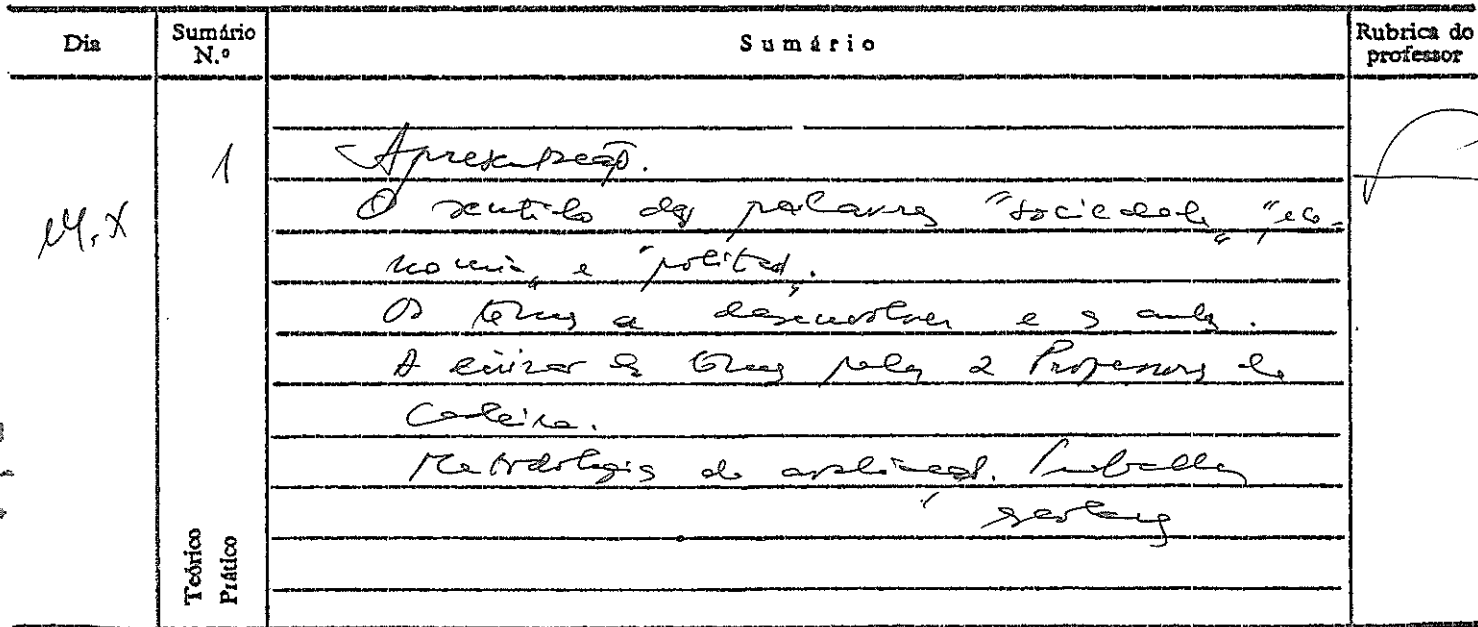 Dia
Sumário N.º
Sumário
Rubrica do professor
1
Apresentação.
O sentido das palavras "sociedade", "eco-
nomia" e "política".
Os temas a desenvolver e as aulas.
A divisão de temas pelos 2 Professores da
Cadeira.
Metodologia de avaliação. Trabalhos
Teórico
Prático